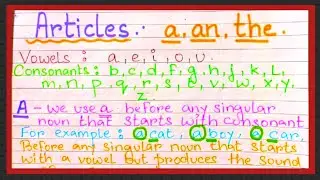 Articles : a, an, the.
Vowels : a, e, i, o, u.
Consonants : b, c, d, f, g, h, j, k, L,
m, n, p, q, r, s, t, v, w, x, y,
z.
A - we use a before any singular
noun that starts with consonant
For example : a cat, a boy, a car,
Before any singular noun that starts
with a vowel but produces the sound